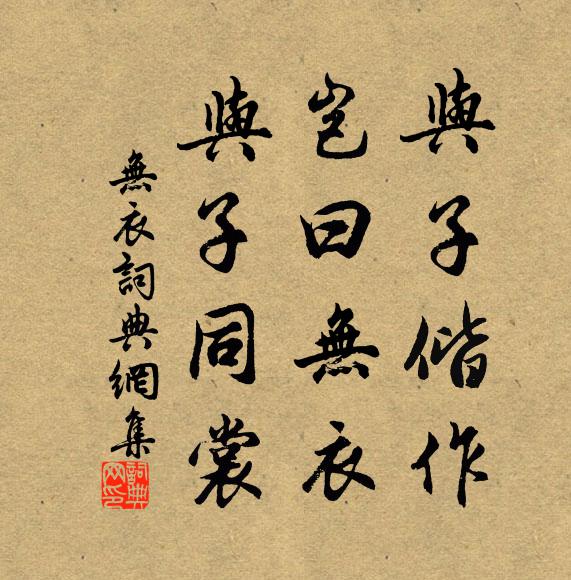 與子偕作
豈曰無衣
與子同裳
無衣詞典網集
詞典网印